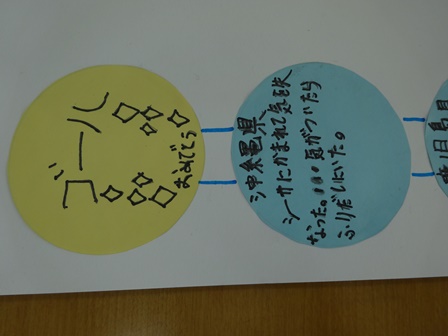 ゴール
おめでとう
沖縄県
シーサにかまれて気を失
なった。・・・気がついたら
ふりだしにいた。